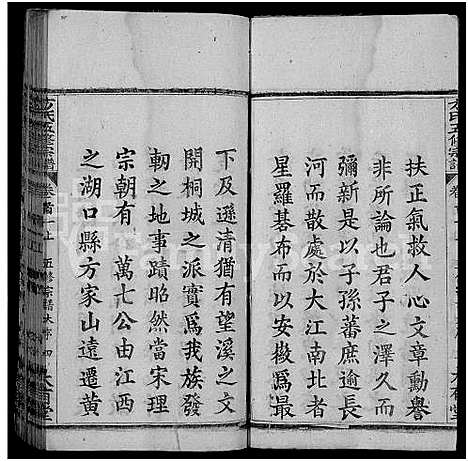 扶正氣救人心文章勳譽
非所論也君子之澤久而
彌新是以子孫蕃庶逾長
河而散處於大江南北者
星羅碁布而以安徽爲最
下及遜清猶有望溪之文
開桐城之派實爲我族發
軔之地事蹟昭然當宋理
宗朝有　萬七公由江西
之湖口縣方家山遠遷黃
方氏五修宗譜
卷首上
五修宗譜
方氏五修宗譜